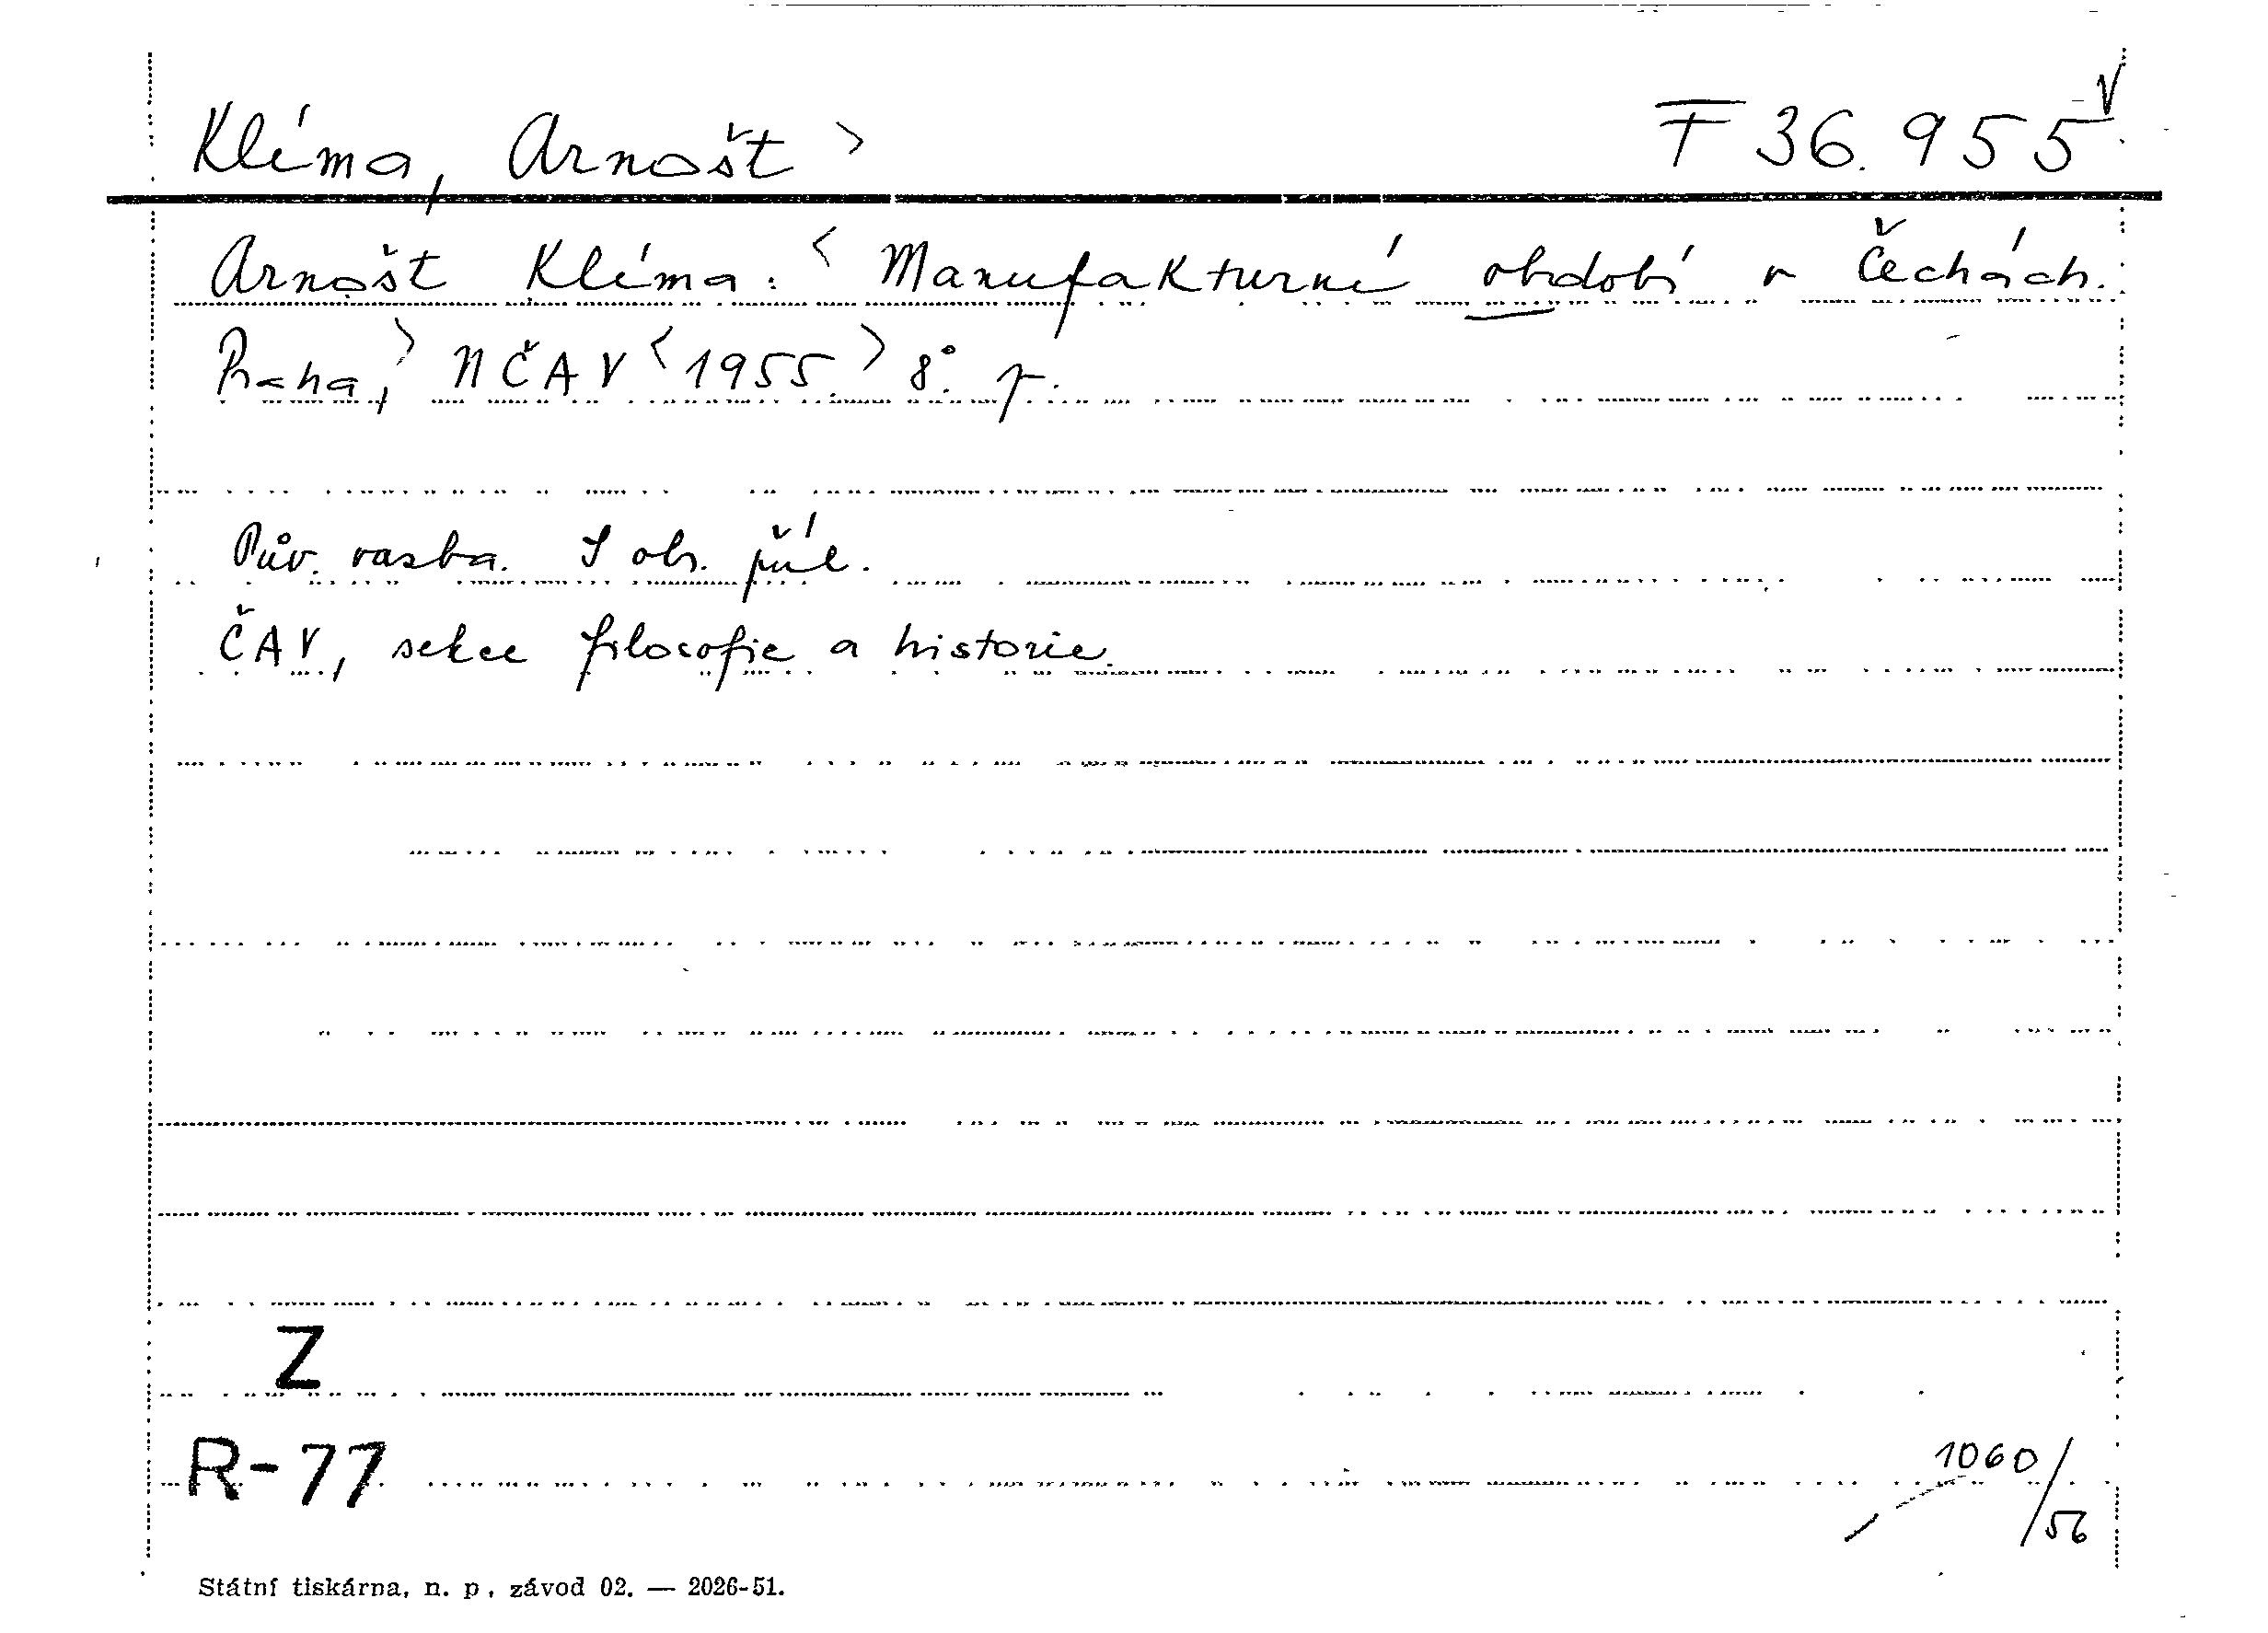 Klíma, Arnošt > F 36.955 V
Arnošt Klíma: < Manufakturní období v Čechách.
Praha, > NČAV < 1955. > 8°. p.
Pův. vazba. S obr. příl.
ČAV, sekce filosofie a historie.
Z
R-77
1060/56
Státní tiskárna, n. p., závod 02. — 2026-51.